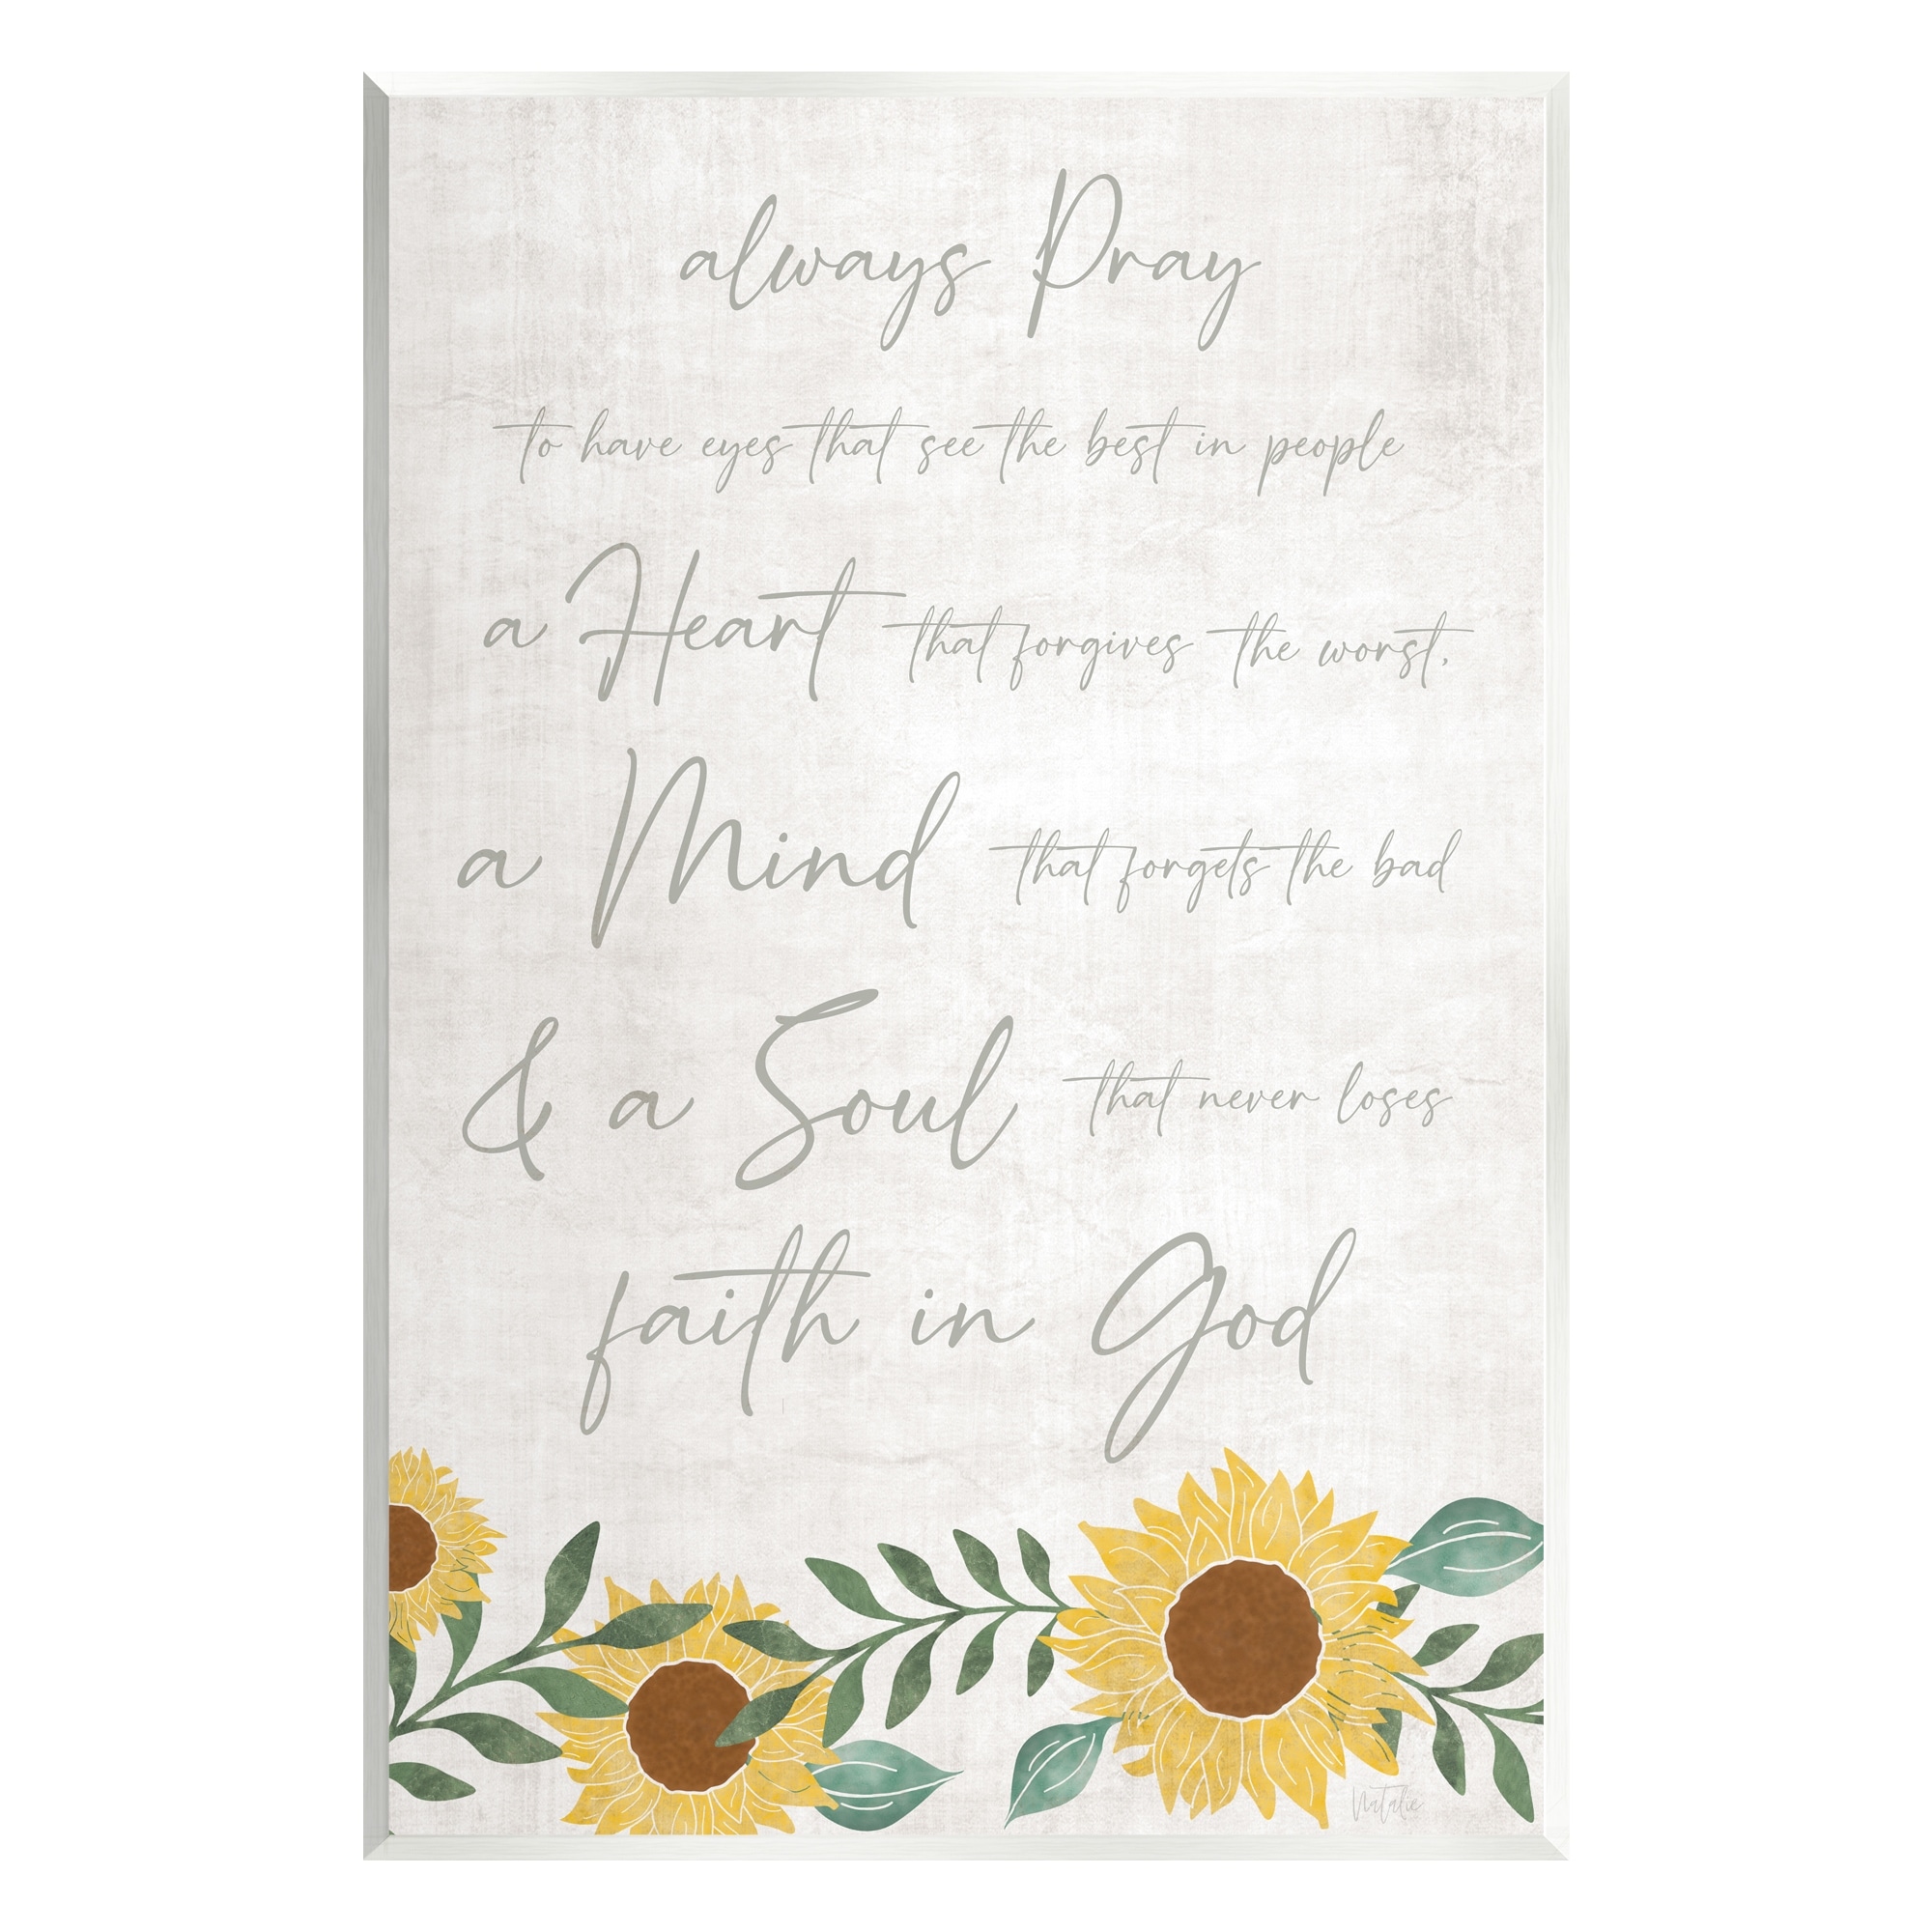 always Pray
to have eyes that see the best in people
a Heart that forgives the worst,
a Mind that forgets the bad
& a Soul that never loses
faith in God
Natalie